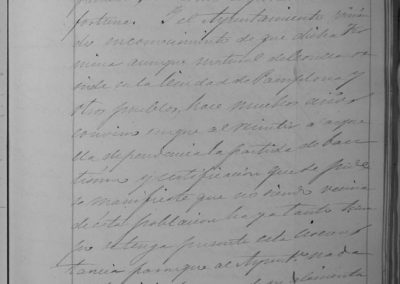 fortuna. Y el Ayuntamiento tenien
do en conocimiento de que dicha Fer
mina aunque natural de
side en la Ciudad de Pamplona y
otros pueblos, hace muchos años
convino en que al remitir a aque
lla dependencia la partida de bau
tismo y certificacion que se pide
se manifieste que no siendo vecina
de esta poblacion hace tanto tiem
po se tenga presente esta circuns
tancia para que al Ayunto. nada